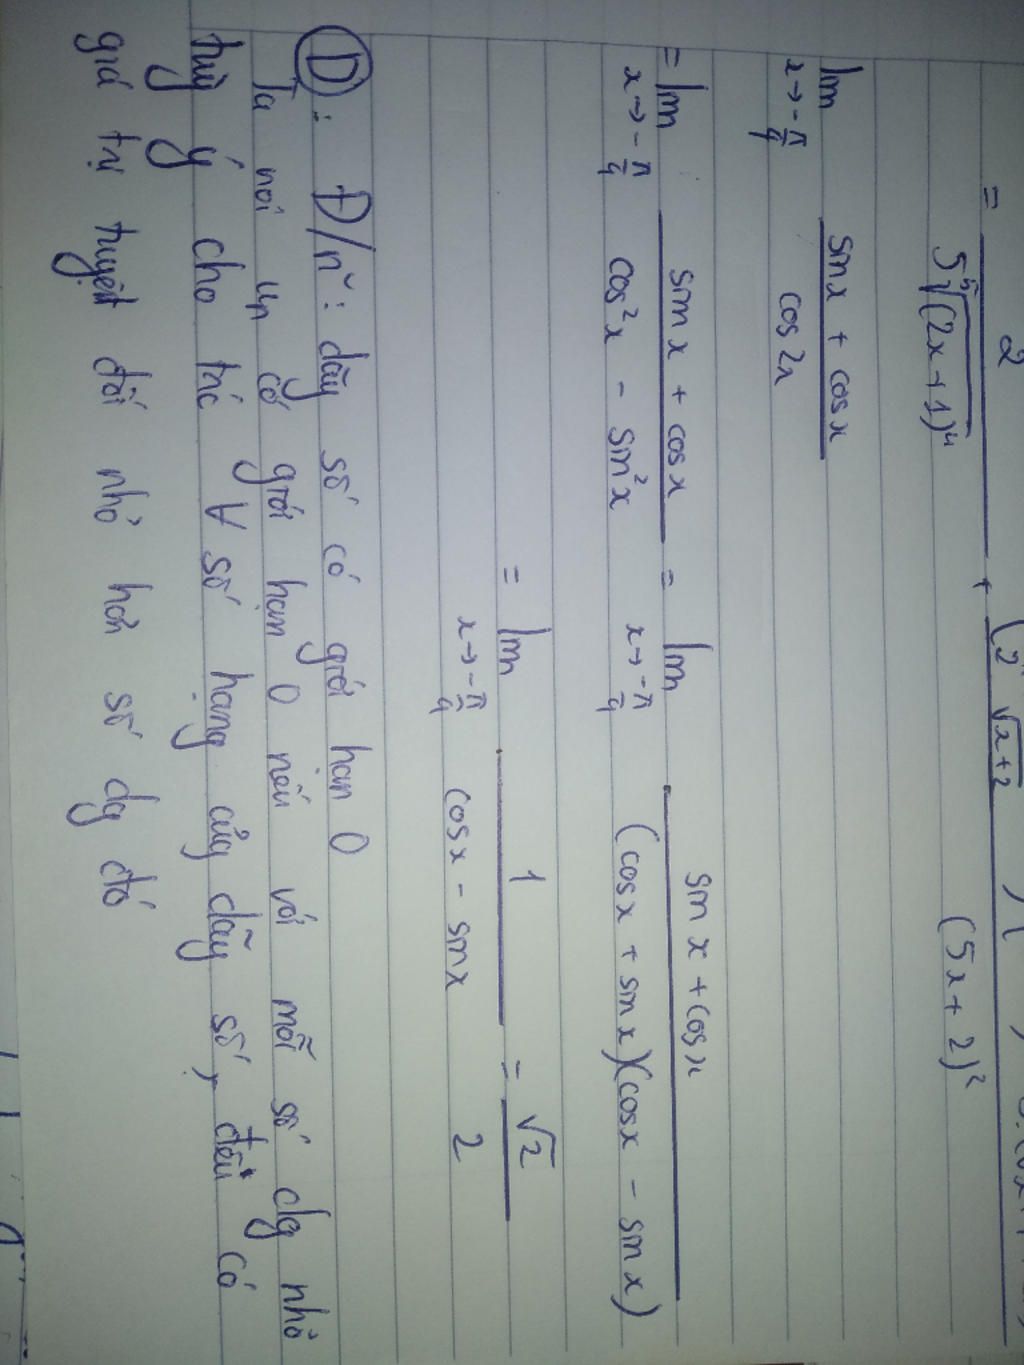 = 2 / 5 ⁵√(2x+1)⁴ + (2 √x+2 / (5x+2)²
lim x→-π/4 sinx + cosx / cos2x
= lim x→-π/4 sin x + cosx / cos²x - sin²x = lim x→-π/4 sin x + cosx / (cosx + sinx)(cosx - sinx)
= lim x→-π/4 1 / cosx - sinx = √2 / 2
Ⓓ: Đ/n~: dãy số có giới hạn 0
Ta nói un có giới hạn 0 nếu với mỗi số dg nhỏ
tuỳ ý cho trc ∀ số hạng của dãy số, đều có
giá trị tuyệt đối nhỏ hơn số dg đó